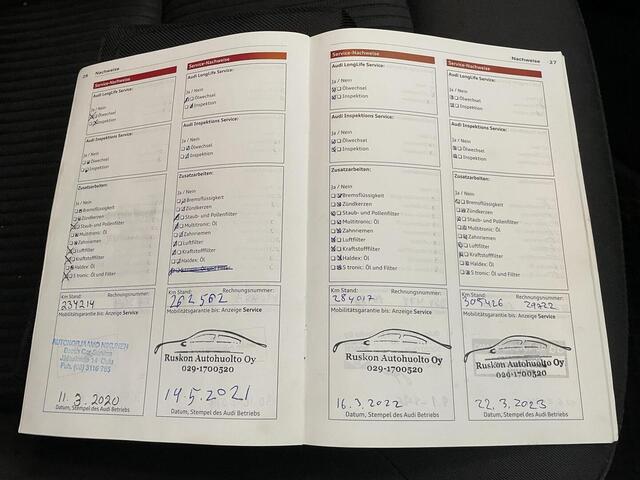 26 Nachweise
Service-Nachweise
Audi LongLife Service:
Ja / Nein
Ölwechsel
Inspektion
Audi Inspektions Service:
Ja / Nein
Ölwechsel
Inspektion
Zusatzarbeiten:
Ja / Nein
Bremsflüssigkeit
Zündkerzen
Staub- und Pollenfilter
Multitronic: Öl
Zahnriemen
Luftfilter
Kraftstofffilter
Haldex: Öl
S tronic: Öl und Filter
Km Stand: Rechnungsnummer:
234214
Mobilitätsgarantie bis: Anzeige Service
11.3.2020
Datum, Stempel des Audi Betriebs
Service-Nachweise
Audi LongLife Service:
Ja / Nein
Ölwechsel
Inspektion
Audi Inspektions Service:
Ja / Nein
Ölwechsel
Inspektion
Zusatzarbeiten:
Ja / Nein
Bremsflüssigkeit
Zündkerzen
Staub- und Pollenfilter
Multitronic: Öl
Zahnriemen
Luftfilter
Kraftstofffilter
Haldex: Öl
Km Stand: Rechnungsnummer:
262562
Mobilitätsgarantie bis: Anzeige Service
Ruskon Autohuolto Oy
029-1700520
19.5.2021
Datum, Stempel des Audi Betriebs
Service-Nachweise
Audi LongLife Service:
Ja / Nein
Ölwechsel
Inspektion
Audi Inspektions Service:
Ja / Nein
Ölwechsel
Inspektion
Zusatzarbeiten:
Ja / Nein
Bremsflüssigkeit
Zündkerzen
Staub- und Pollenfilter
Multitronic: Öl
Zahnriemen
Luftfilter
Kraftstofffilter
Haldex: Öl
S tronic: Öl und Filter
Km Stand: Rechnungsnummer:
284017
Mobilitätsgarantie bis: Anzeige Service
Ruskon Autohuolto Oy
029-1700520
16.3.2022
Datum, Stempel des Audi Betriebs
Nachweise 27
Service-Nachweise
Audi LongLife Service:
Ja / Nein
Ölwechsel
Inspektion
Audi Inspektions Service:
Ja / Nein
Ölwechsel
Inspektion
Zusatzarbeiten:
Ja / Nein
Bremsflüssigkeit
Zündkerzen
Staub- und Pollenfilter
Multitronic: Öl
Zahnriemen
Luftfilter
Kraftstofffilter
Haldex: Öl
S tronic: Öl und Filter
Km Stand: Rechnungsnummer:
305426 29722
Mobilitätsgarantie bis: Anzeige Service
Ruskon Autohuolto Oy
029-1700520
22.3.2023
Datum, Stempel des Audi Betriebs